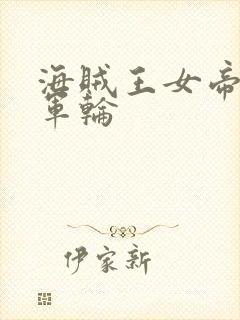 海賊王女帝
軍輪
伊家新